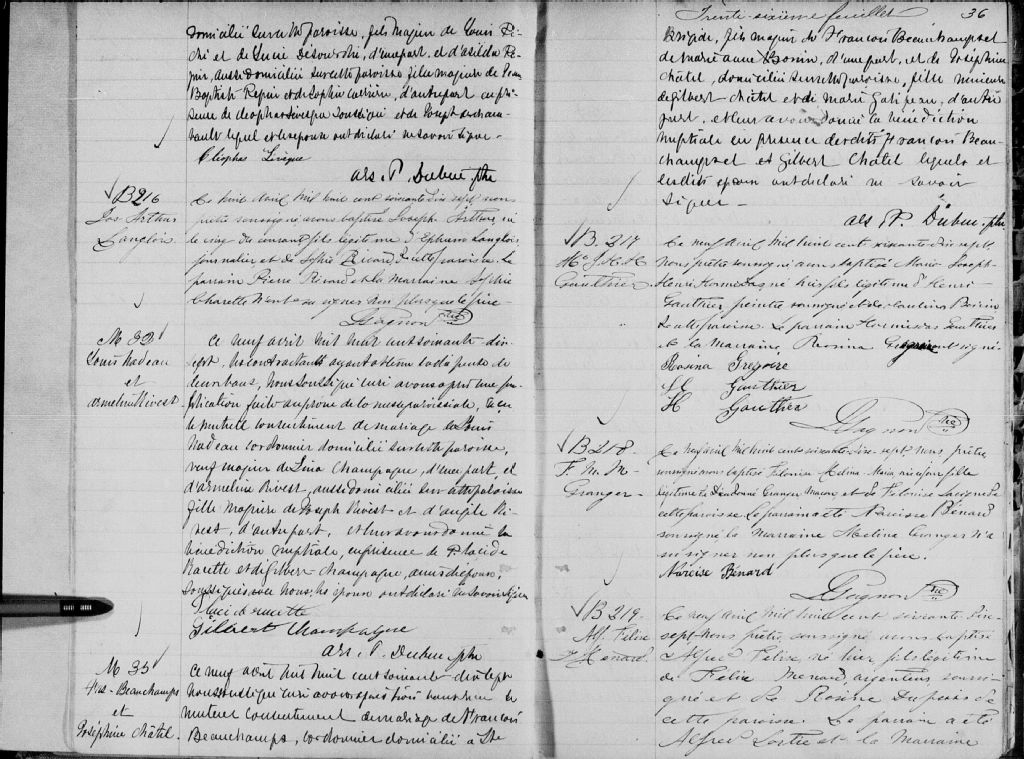 domicilié sur cette paroisse, fils majeur de Louis
et de Lucie d'une part, et d'Asilda
aussi domiciliée sur cette paroisse fille majeure de Jean
Baptiste Pepin et de Sophie d'autre part en pré-
sence de Cleophas Levesque soussigné et de Joseph
lequel et les époux ont déclaré ne savoir signer.
Cléophas Lévèque
als. P. Dubuc, ptre
B 216
Jos Arthur
Langlois
Ce huit Avril mil huit cent soixante dix sept nous
prêtre soussigné avons baptisé Joseph Arthur né
le cinq du courant fils légitime d'Ephrem Langlois
journalier et de Sophie Ricard de cette paroisse. Le
parrain Pierre Ricard et la marraine Sophie
Charette n'ont su signer non plus que le père
LGagnon Ptre
M 32
Louis Nadeau
et
Armeline Rivest
Ce neuf avril mil huit cent soixante dix-
sept, les contractants ayant obtenu la dispense de
deux bans, Nous soussigné curé avons après une pu-
blication faite au prône de la messe paroissiale, reçu
le mutuel consentement de mariage de Louis
Nadeau cordonnier domicilié sur cette paroisse,
veuf majeur de Lina Champagne, d'une part, et
d'Armeline Rivest, aussi domiciliée sur cette paroisse
fille majeure de Joseph Rivest et d'Angèle Ri-
vest, d'autre part, et leur avons donné la
bénédiction nuptiale, en présence de Placide
et de Gilbert Champagne, amis des époux,
soussignés avec nous, les époux ont déclaré ne savoir signer
Placide
Gilbert Champagne
als. P. Dubuc, ptre
M 33
Frs. Beauchamps
et
Joséphine Châtel.
Ce neuf avril mil huit cent soixante dix sept
Nous soussigné curé avons reçu le
mutuel consentement de mariage de François
Beauchamps, cordonnier domicilié à Ste
Trente-sixième feuillet 36
Brigide, fils majeur de François Beauchamps et
de Marie Anne Bonin, d'une part, et de Joséphine
Châtel, domiciliée sur cette paroisse, fille mineure
de Gilbert Châtel et de Marie Galipeau, d'autre
part, et leur avons donné la bénédiction
nuptiale en présence desdits François Beau-
champs et Gilbert Châtel lesquels et
lesdits époux ont déclaré ne savoir
signer -
als P. Dubuc, ptre
B. 217
Me J. H. H
Gauthier
Ce neuf Avril mil huit cent soixante dix sept
Nous prêtre soussigné avons baptisé Marie Joseph-
Henri Hormisdas, né hier fils légitime d'Henri
Gauthier peintre soussigné et de
de cette paroisse. Le parrain Hormisdas Gauthier
et la marraine, Rosina ont signé
Rosina Gregoire
H Gauthier
H Gauthier
LGagnon Ptre
B 218
F. M. M.
Granger
Ce neuf Avril mil huit cent soixante-dix-sept. Nous, prêtre
soussigné avons baptisé Felonise Melina Maria née ce jour fille
légitime de Dieudonné Granger maçon et de Felonise de
cette paroisse. Le parrain a été Narcisse Bénard
soussigné la marraine Meline Granger n'a
su signer non plus que le père.
Narcise Bénard
LGagnon Ptre
B 219.
Alf. Félix
J Ménard.
Ce neuf Avril mil huit cent soixante dix-
sept Nous prêtre, soussigné avons baptisé
Alfred Felix, né hier, fils légitime
de Felix Menard, argenteur, soussi-
gné et de Rosine Dupuis de
cette paroisse. Le parrain a été
Alfred Lortie et la Marraine